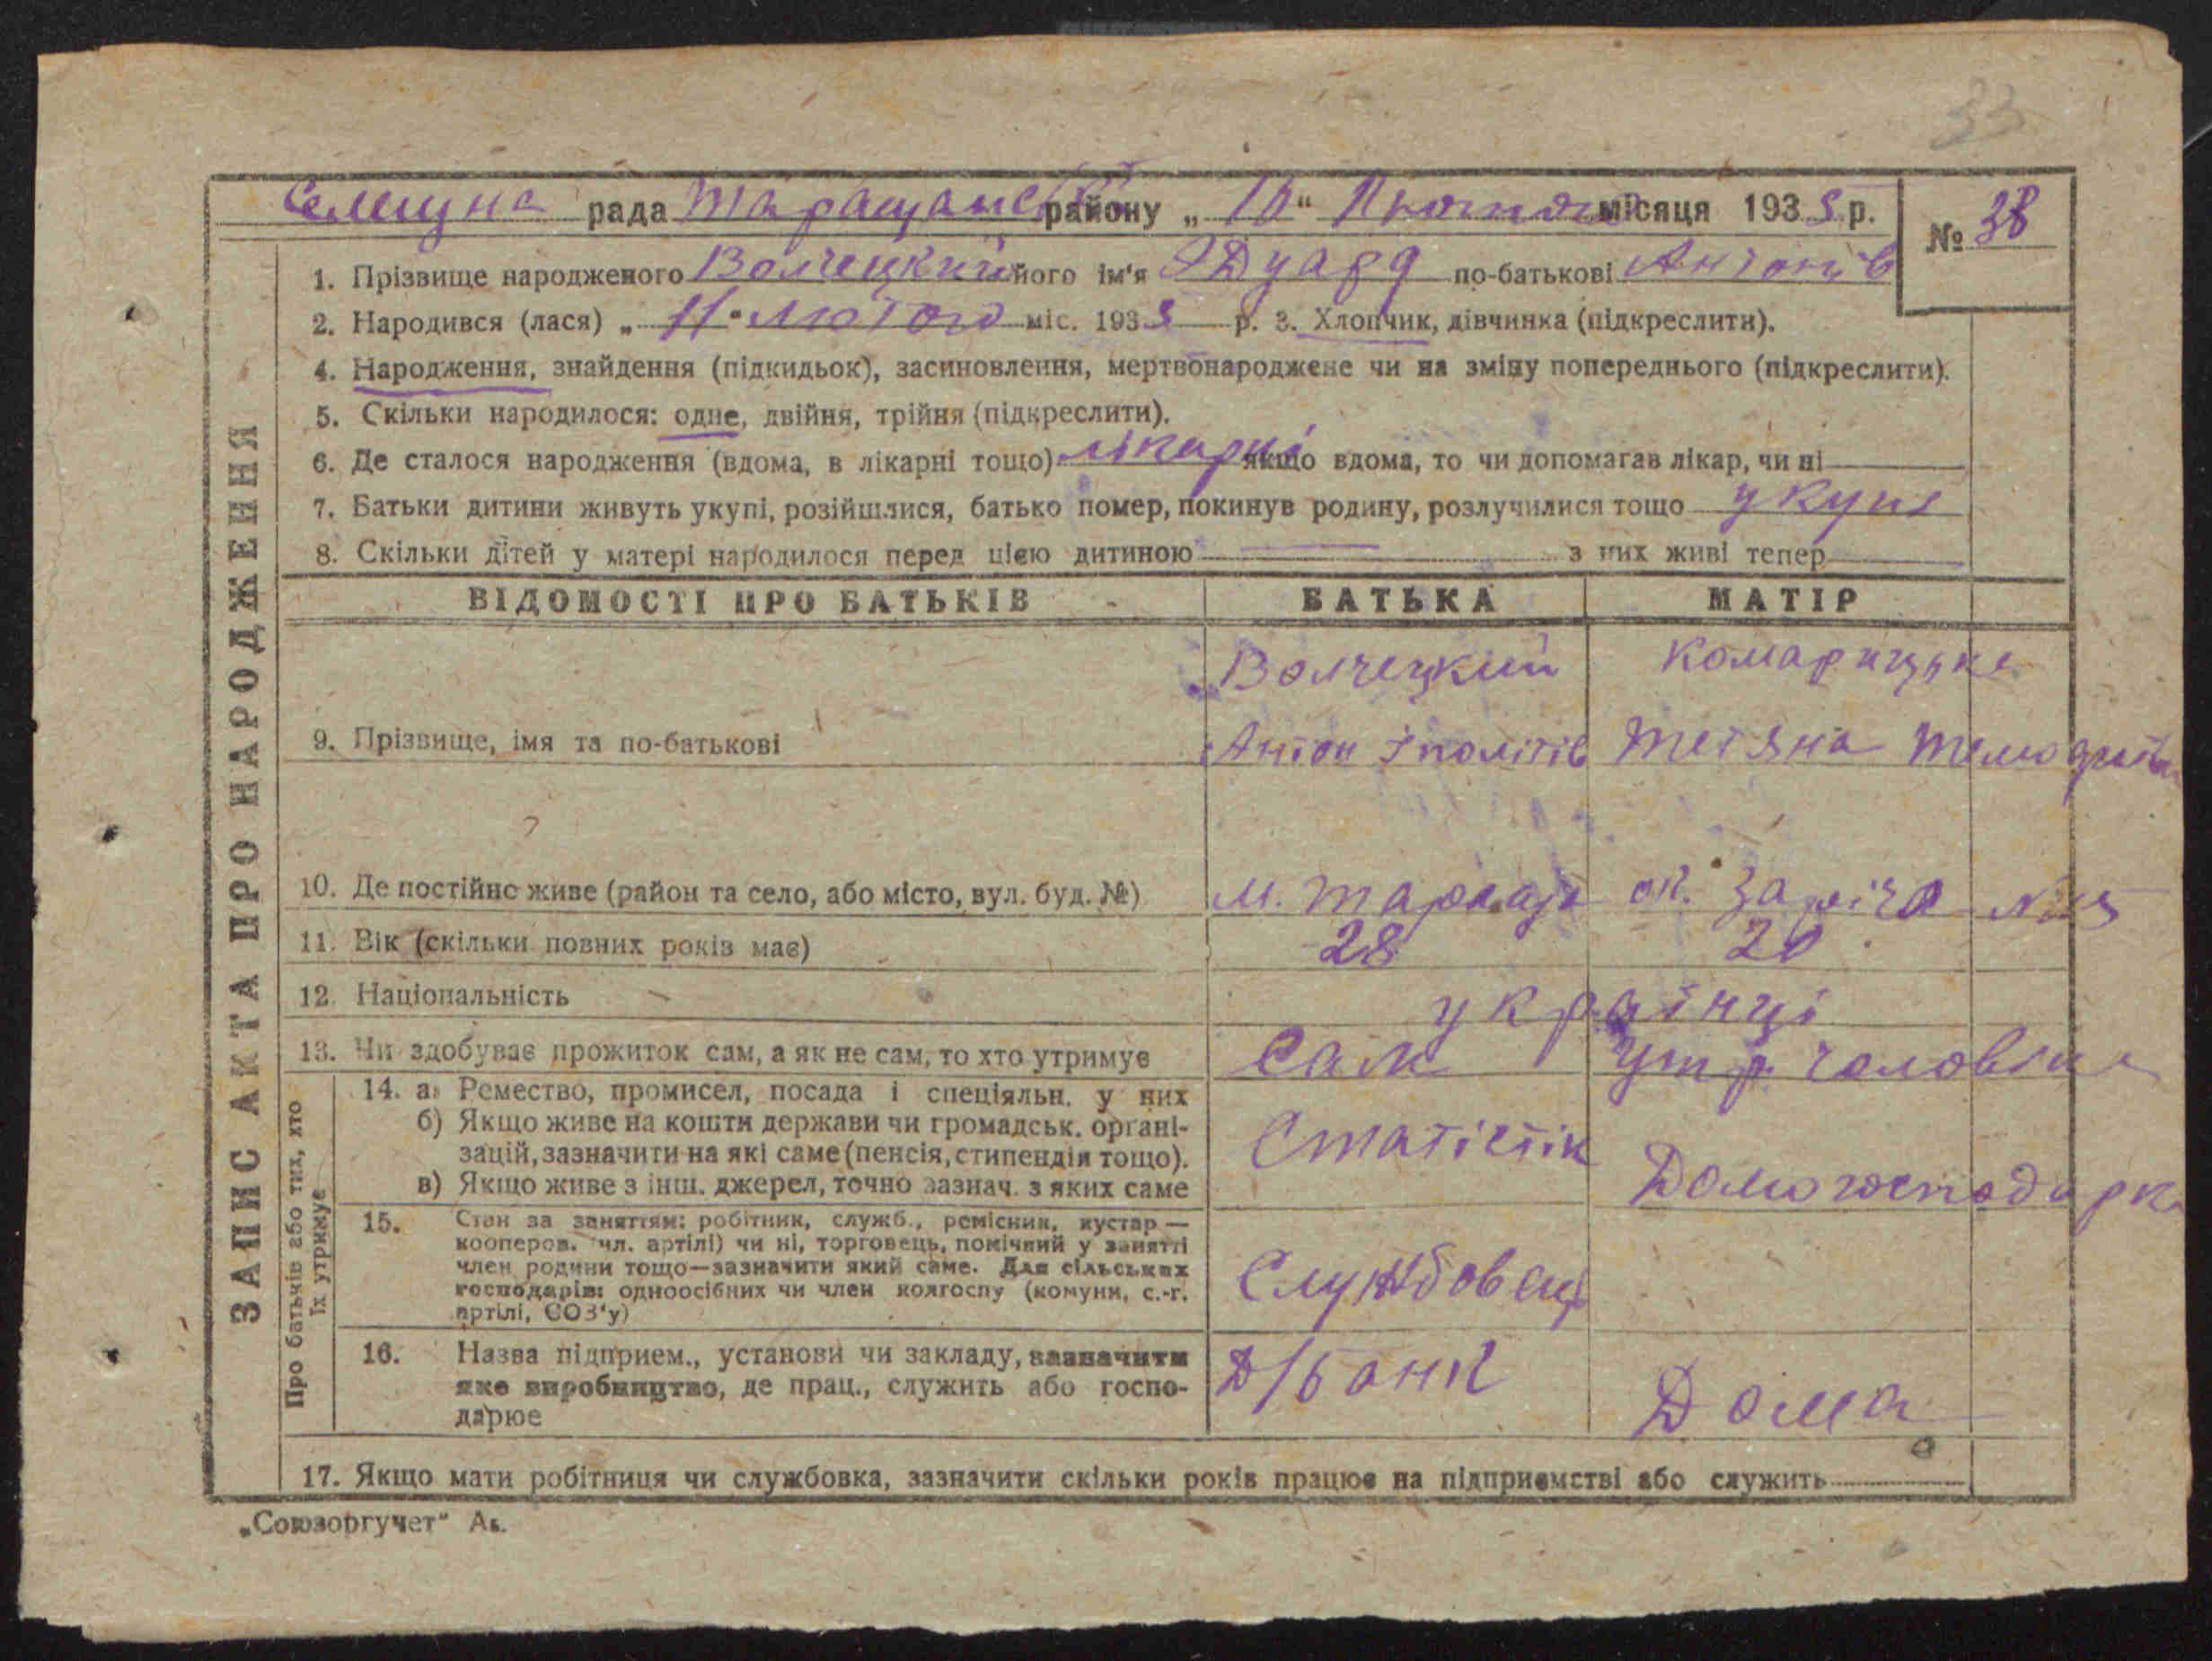 33
Селищна рада Таращанск району „16“ Лютого місяця 1933 р. № 38
1. Прізвище народженого Волчецкий його ім'я Эдуард по-батькові Антонів
2. Народився (лася) „11“ Лютого міс. 1933 р. 3. Хлопчик, дівчинка (підкреслити).
4. Народження, знайдення (підкидьок), засиновлення, мертвонароджене чи на зміну попереднього (підкреслити).
5. Скільки народилося: одне, двійня, трійня (підкреслити).
6. Де сталося народження (вдома, в лікарні тощо) лікарні якщо вдома, то чи допомагав лікар, чи ні
7. Батьки дитини живуть укупі, розійшлися, батько помер, покинув родину, розлучилися тощо укупі
8. Скільки дітей у матері народилося перед цією дитиною — з них живі тепер
ВІДОМОСТІ ПРО БАТЬКІВ БАТЬКА МАТІР
Волчецкий Комарицьке
9. Прізвище, імя та по-батькові Антон Іполітів Тетяна
10. Де постійно живе (район та село, або місто, вул. буд. №) м. Тараща ок. Заріча №
11. Вік (скільки повних років має) 28 20
12. Національність українці
13. Чи здобуває прожиток сам, а як не сам, то хто утримує Сам Утр. чоловік
14. а) Ремество, промисел, посада і спеціяльн. у них
б) Якщо живе на кошти держави чи громадськ. органі-
зацій, зазначити на які саме (пенсія, стипендія тощо). Статістік
в) Якщо живе з інш. джерел, точно зазнач. з яких саме Домогосподарка
15. Стан за заняттям: робітник, служб., ремісник, кустар —
коопepов. чл. артілі) чи ні, торговець, помічний у занятті
член родини тощо—зазначити який саме. Для сільських
господарів: одноосібних чи член колгоспу (комуни, с.-г.
артілі, СОЗ'у) Службовець
16. Назва підприєм., установи чи закладу, зазначити
яке виробництво, де прац., служить або госпо-
дарює Д/банк Дома
17. Якщо мати робітниця чи службовка, зазначити скільки років працює на підприємстві або служить
ЗАПИС АКТА ПРО НАРОДЖЕННЯ
Про батьків або тих, хто
їх утримує
„Союзоргучет“